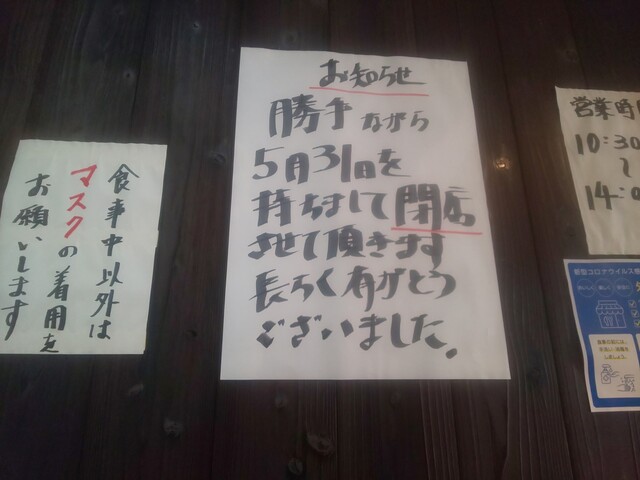 お知らせ
勝手ながら
5月31日を
持ちまして閉店
させて頂きます
長らく有がとう
ございました.
食事中以外は
マスクの着用を
お願いします
営業時
10:30
~
14:0
新型コロナウイルス